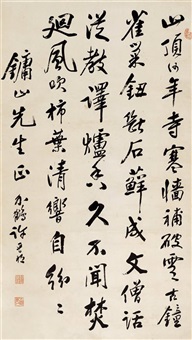 山頂何年寺寒墻補破雲古鐘
雀巢鈕斷石蘚成文僧話
從教譯爐香久不聞焚
廻風吹柿葉清響自紛〻
鏞山先生正